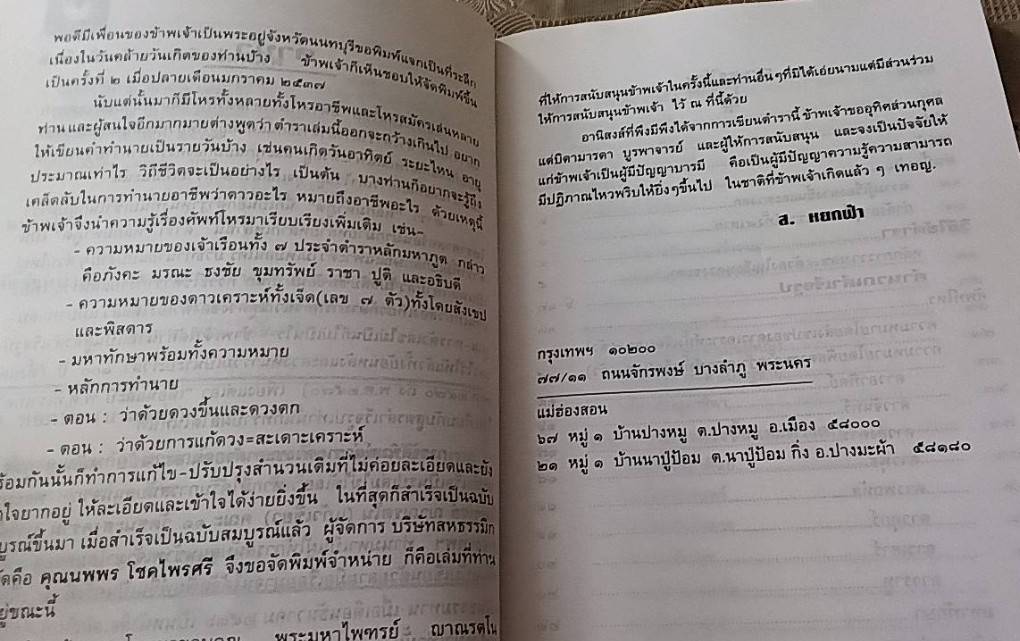 พอดีมีเพื่อนของข้าพเจ้าเป็นพระอยู่จังหวัดนนทบุรีขอพิมพ์แจกเป็นที่ระลึก
เนื่องในวันคล้ายวันเกิดของท่านบ้าง ข้าพเจ้าก็เห็นชอบให้จัดพิมพ์ขึ้น
เป็นครั้งที่ ๒ เมื่อปลายเดือนมกราคม ๒๕๓๗
นับแต่นั้นมาก็มีโหรทั้งหลายทั้งโหรอาชีพและโหรสมัครเล่นหลาย
ท่าน และผู้สนใจอีกมากมายต่างพูดว่า ตำราเล่มนี้ออกจะกว้างเกินไป อยาก
ให้เขียนคำทำนายเป็นรายวันบ้าง เช่นคนเกิดวันอาทิตย์ ระยะไหน อายุ
ประมาณเท่าไร วิถีชีวิตจะเป็นอย่างไร เป็นต้น บางท่านก็อยากจะรู้ถึง
เคล็ดลับในการทำนายอาชีพว่าดาวอะไร หมายถึงอาชีพอะไร ด้วยเหตุนี้
ข้าพเจ้าจึงนำความรู้เรื่องศัพท์โหรมาเรียบเรียงเพิ่มเติม เช่น-
- ความหมายของเจ้าเรือนทั้ง ๗ ประจำตำราหลักมหาภูต กล่าว
คือภังคะ มรณะ ธงชัย ขุมทรัพย์ ราชา ปูติ และอธิบดี
- ความหมายของดาวเคราะห์ทั้งเจ็ด(เลข ๗ ตัว)ทั้งโดยสังเขป
และพิสดาร
- มหาทักษาพร้อมทั้งความหมาย
- หลักการทำนาย
- ตอน : ว่าด้วยดวงขึ้นและดวงตก
- ตอน : ว่าด้วยการแก้ดวง=สะเดาะเคราะห์
ร้อมกันนั้นก็ทำการแก้ไข-ปรับปรุงสำนวนเดิมที่ไม่ค่อยละเอียดและยัง
าใจยากอยู่ ให้ละเอียดและเข้าใจได้ง่ายยิ่งขึ้น ในที่สุดก็สำเร็จเป็นฉบับ
บูรณ์ขึ้นมา เมื่อสำเร็จเป็นฉบับสมบูรณ์แล้ว ผู้จัดการ บริษัทสหธรรมิก
ัดคือ คุณนพพร โชคไพรศรี จึงขอจัดพิมพ์จำหน่าย ก็คือเล่มที่ท่าน
ยู่ขณะนี้
พระมหาไพฑูรย์ ญาณรตโน
ที่ให้การสนับสนุนข้าพเจ้าในครั้งนี้และท่านอื่นๆที่มิได้เอ่ยนามแต่มีส่วนร่วม
ให้การสนับสนุนข้าพเจ้า ไว้ ณ ที่นี้ด้วย
อานิสงส์ที่พึงมีพึงได้จากการเขียนตำรานี้ ข้าพเจ้าขออุทิศส่วนกุศล
แด่บิดามารดา บูรพาจารย์ และผู้ให้การสนับสนุน และจงเป็นปัจจัยให้
แก่ข้าพเจ้าเป็นผู้มีปัญญาบารมี คือเป็นผู้มีปัญญาความรู้ความสามารถ
มีปฏิภาณไหวพริบให้ยิ่งๆขึ้นไป ในชาติที่ข้าพเจ้าเกิดแล้ว ๆ เทอญ.
ส. หยกฟ้า
กรุงเทพฯ ๑๐๒๐๐
๗๗/๑๑ ถนนจักรพงษ์ บางลำภู พระนคร
แม่ฮ่องสอน
๖๗ หมู่ ๑ บ้านปางหมู ต.ปางหมู อ.เมือง ๕๘๐๐๐
๒๑ หมู่ ๑ บ้านนาปู่ป้อม ต.นาปู่ป้อม กิ่ง อ.ปางมะผ้า ๕๘๑๕๐